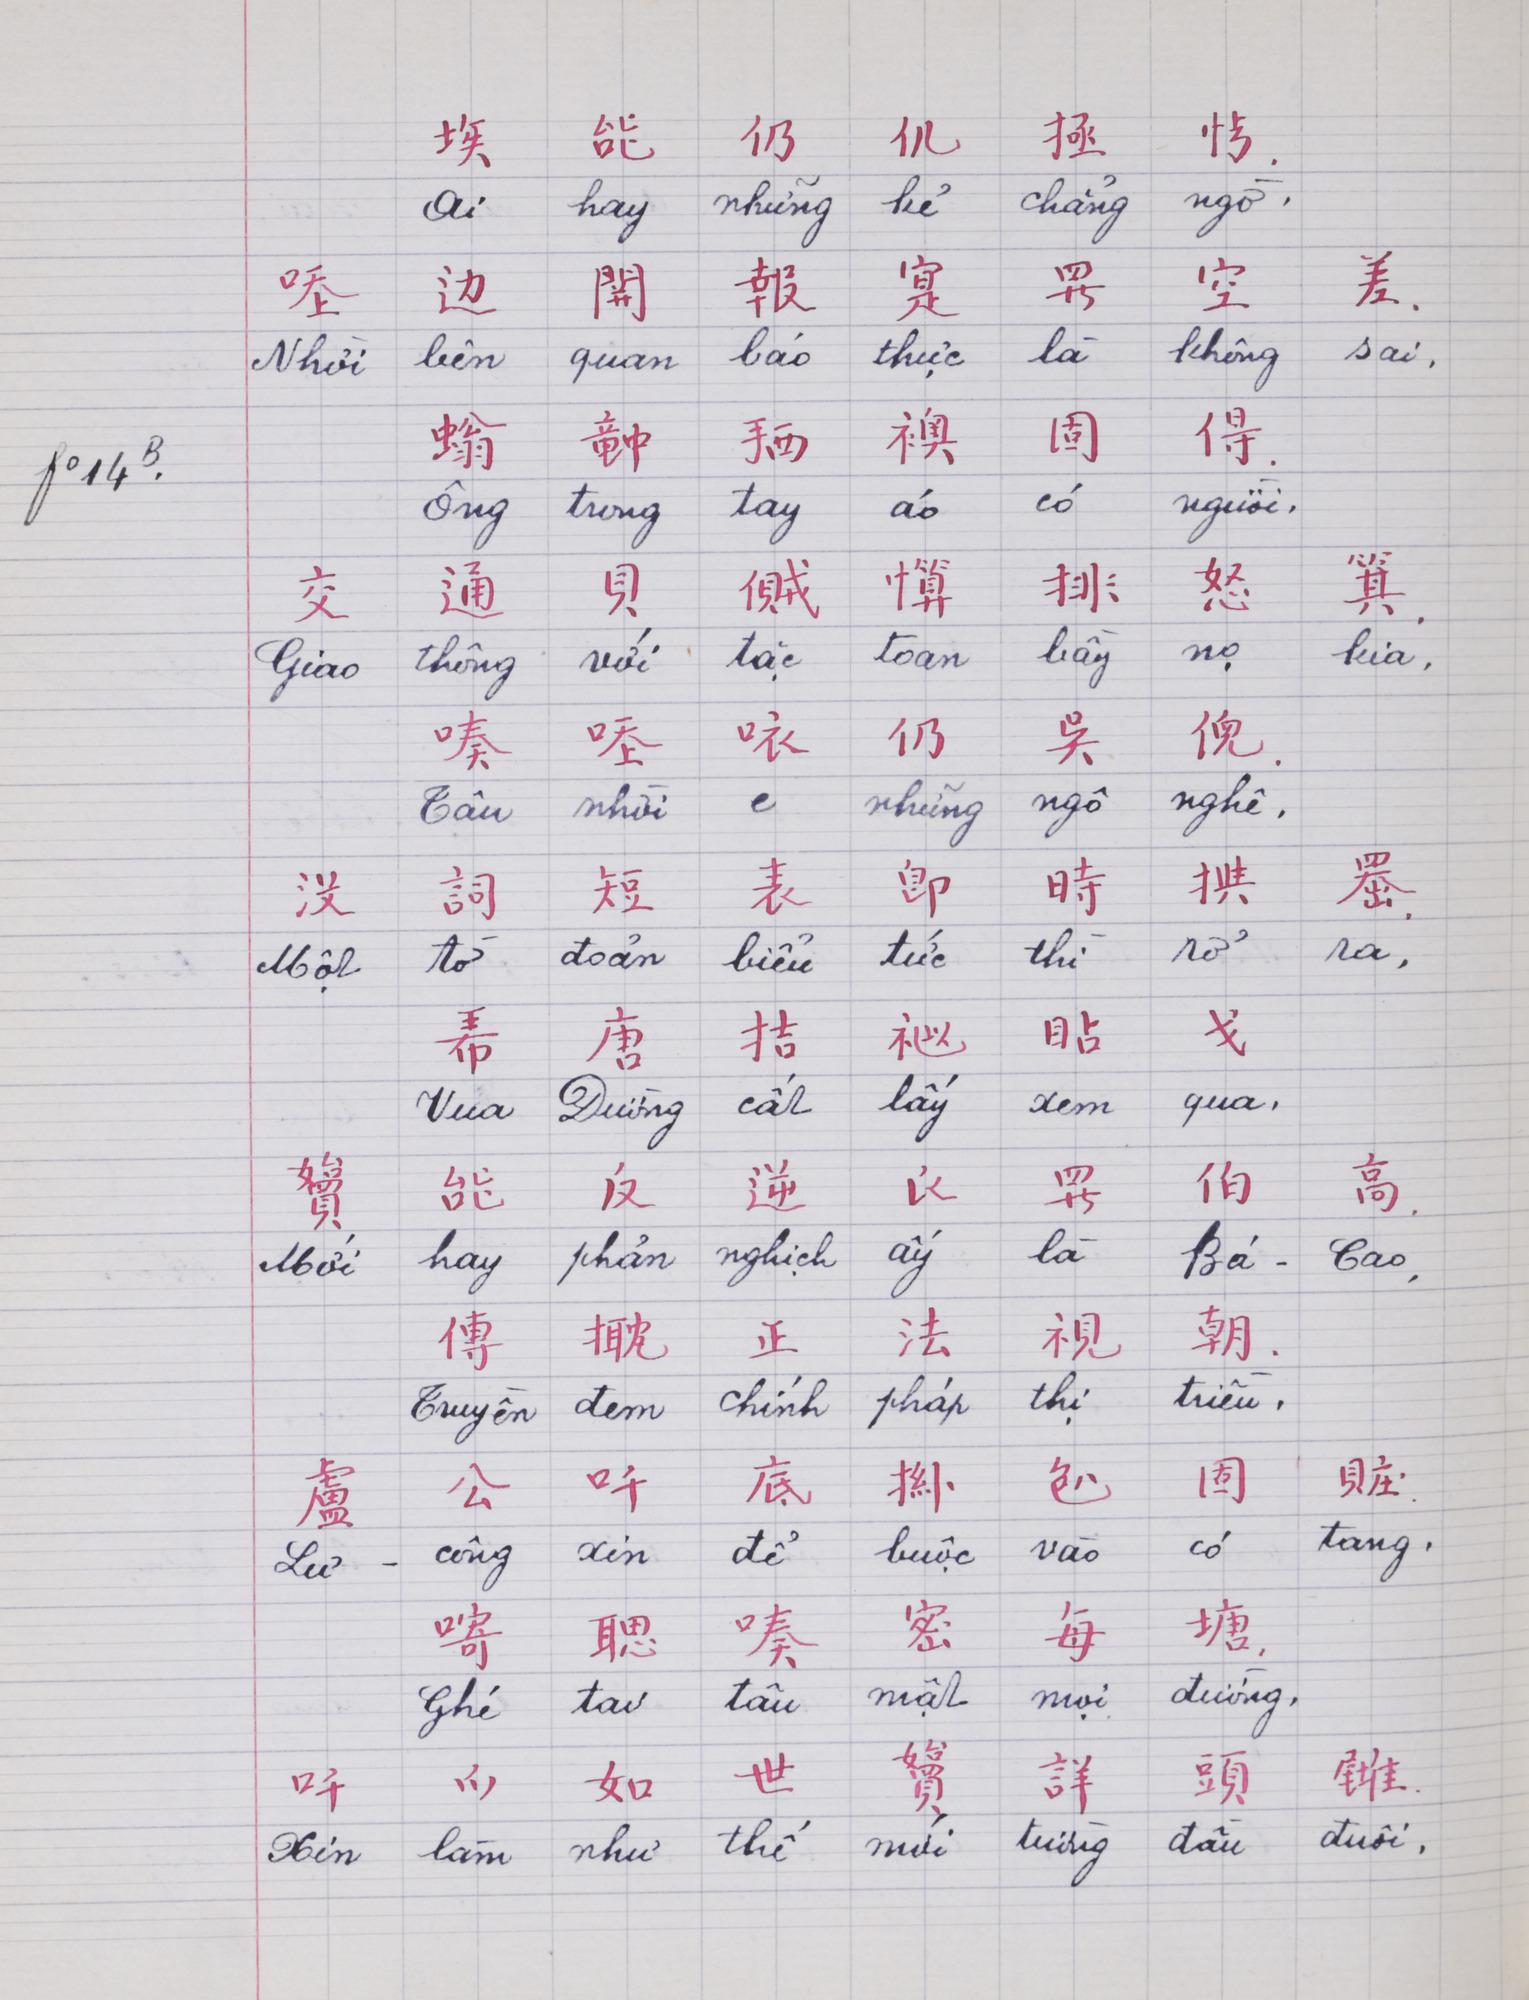 埃 能 仍 仉 拯
Ai hay những kẻ chẳng ngờ.
边 開 報 寔 羅 空 差.
Nhời bên quan báo thực là không sai.
螉 𥪝 𢬣 襖 固 㝵.
fº 14 B.
Ông trong tay áo có người.
交 通 貝 賊 算 排 怒 箕.
Giao thông với tặc toan bầy nọ kia.
嗪 唩 㕈 仍 吳 倪.
Tâu nhời e những ngô nghê.
没 詞 短 表 即 時 㩡 𦋦.
Một tờ đoản biểu tức thì rở ra,
𢂜 唐 拮 𥙩 貼 戈
Vua Đường cất lấy xem qua.
能 反 逆 羅 伯 高.
Mới hay phản nghịch ấy là Bá - Cao,
傅 正 法 視 朝.
Truyền đem chính pháp thị triều.
盧 公 吀 底 固 賍.
Lư - công xin để buộc vào có tang.
聰 嗪 密 每 塘.
Ghé tai tâu mật mọi đường.
吀 如 世 詳 頭
Xin làm như thế mới tường đầu đuôi.